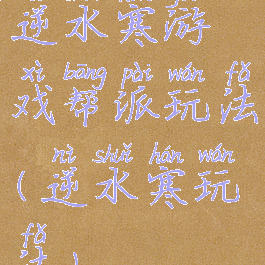 逆水寒游
xì bāng pài wán fǎ
戏帮派玩法
nì shuǐ hán wán
(逆水寒玩
fǎ
法)